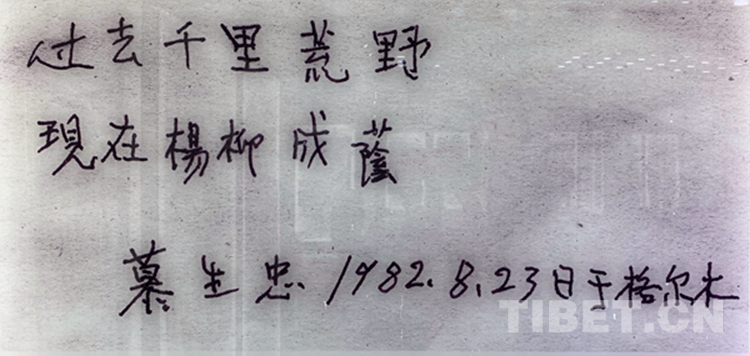 过去千里荒野
現在楊柳成蔭
慕生忠 1982.8.23日于格尔木
TIBET.CN